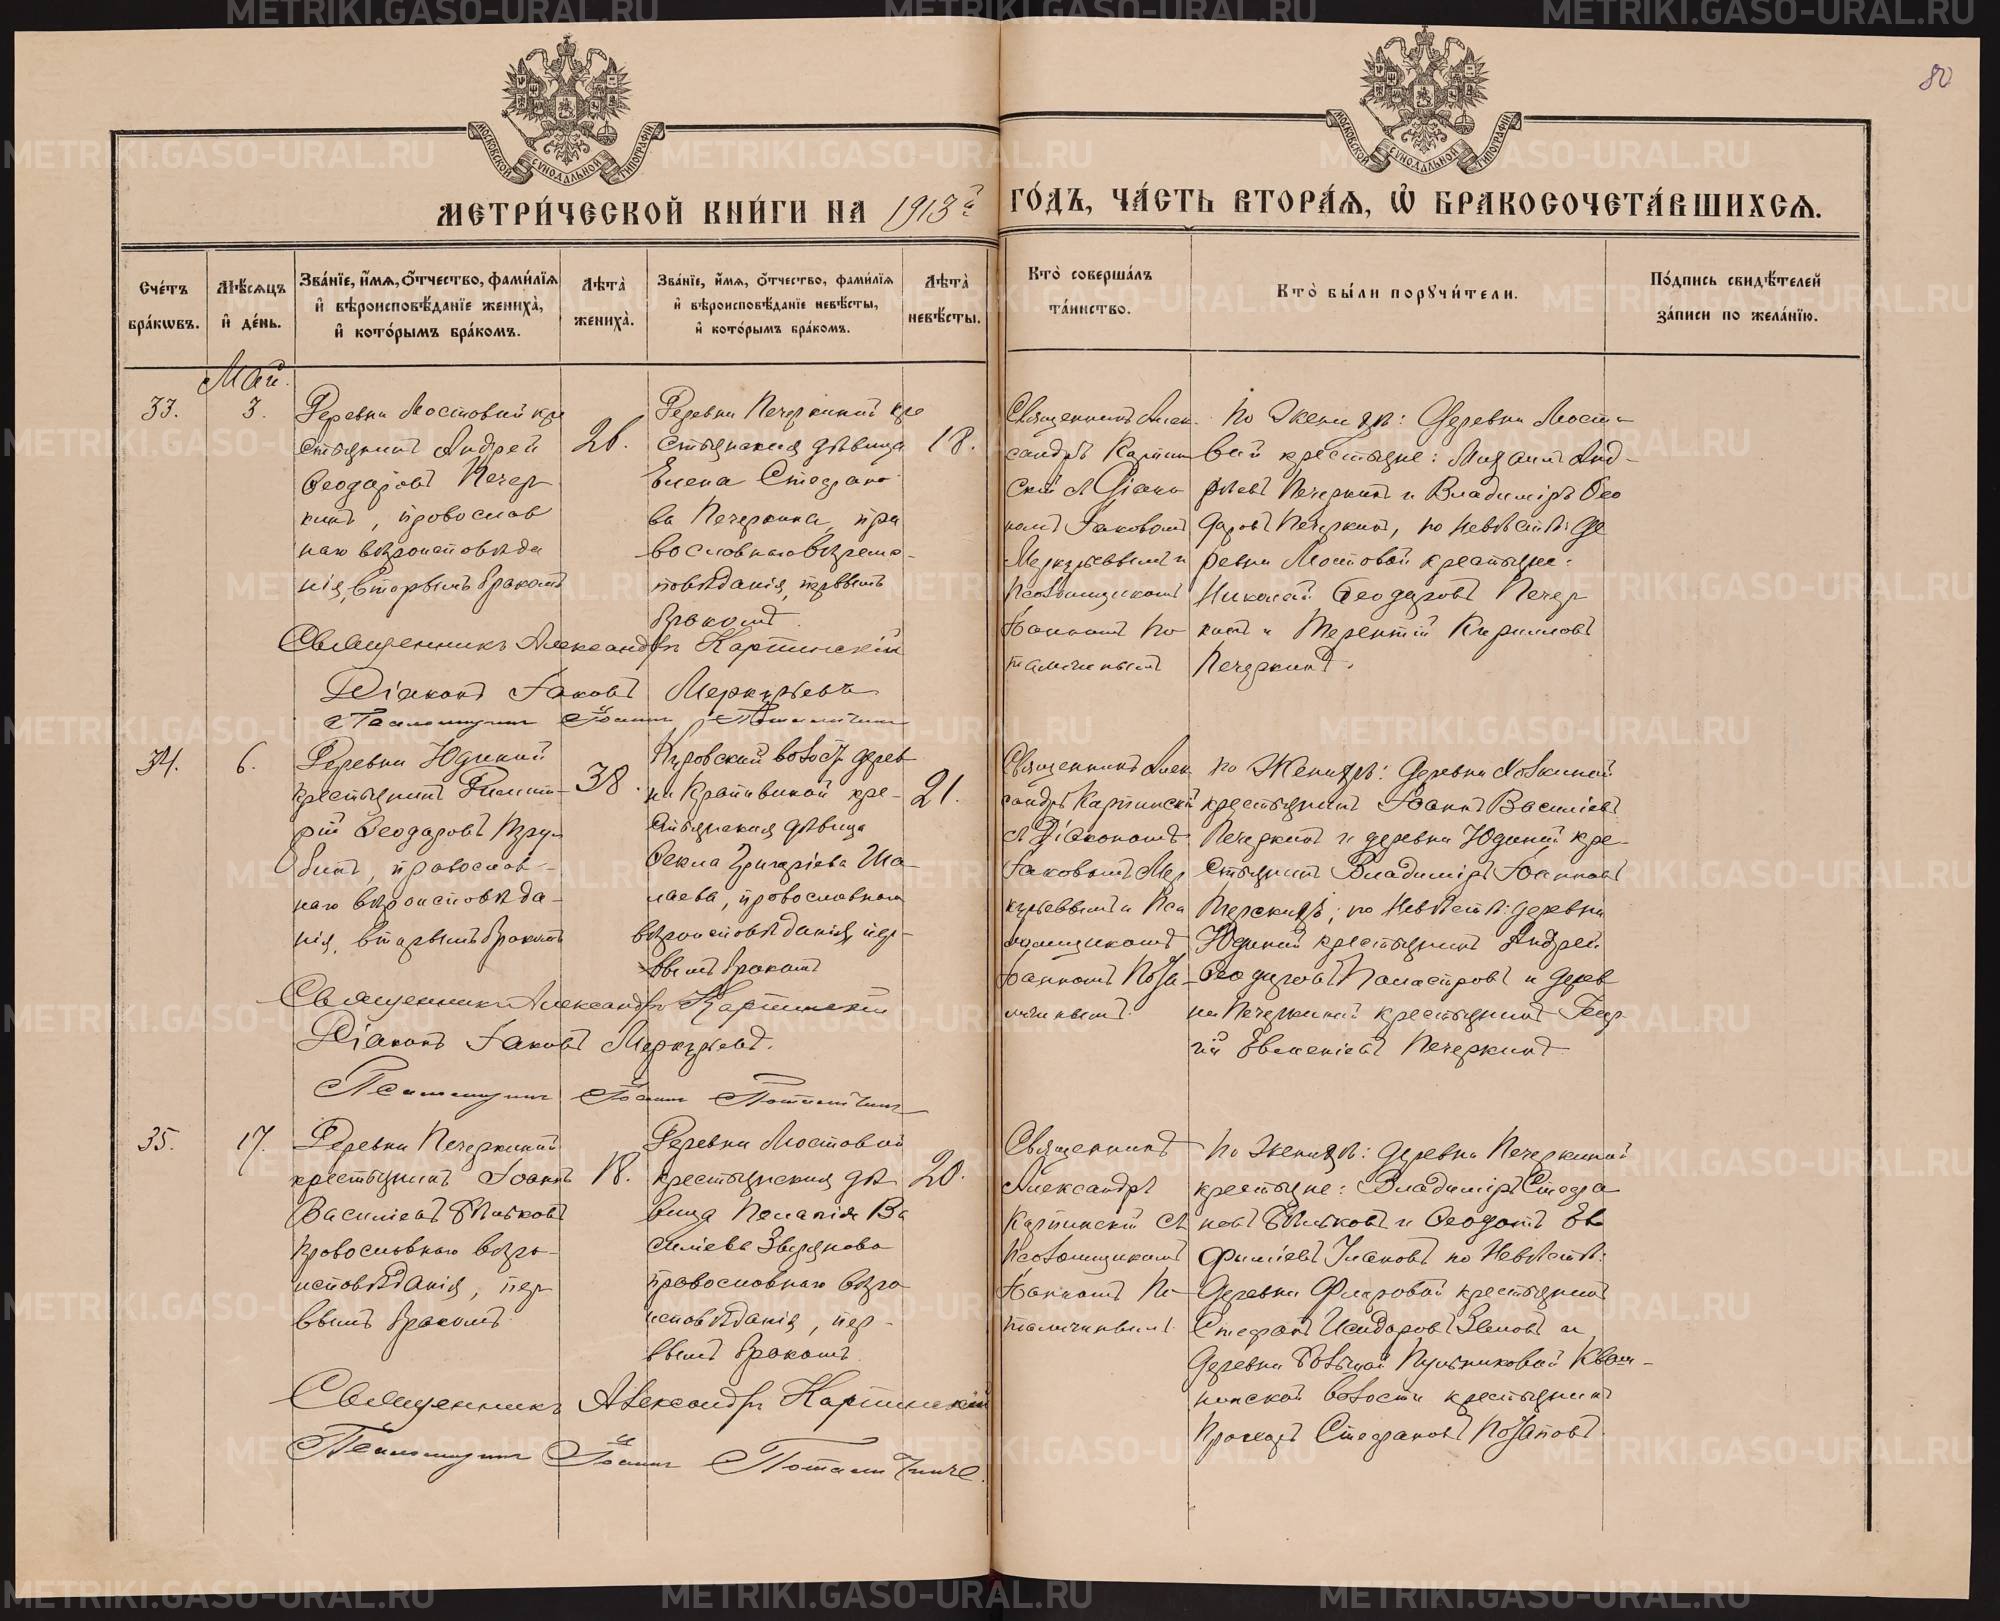 80
МОСКОВСКОЙ СѴНОДАЛЬНОЙ ТИПОГРАФІИ
МОСКОВСКОЙ СѴНОДАЛЬНОЙ ТИПОГРАФІИ
МЕТРИ́ЧЕСКОЙ КНИ́ГИ НА 1913й ГО́ДЪ, ЧА́СТЬ ВТОРА́Ѧ, Ѡ҆ БРАКОСОЧЕТА́ВШИХСѦ.
Сче́тъ
бра́кѡвъ.
Мѣ́сѧцъ
и҆ де́нь.
Зва́нїе, и҆́мѧ, ѻ҆́тчество, фами́лїѧ
и҆ вѣроисповѣ́данїе жениха̀,
и҆ кото́рымъ бра́комъ.
Лѣта̀
жениха̀.
Зва́нїе, и҆́мѧ, ѻ҆́тчество, фами́лїѧ
и҆ вѣроисповѣ́данїе невѣ́сты,
и҆ кото́рымъ бра́комъ.
Лѣта̀
невѣ́сты.
Кто̀ соверша́лъ
та́инство.
Кто̀ бы́ли порꙋчи́тели.
По́дпись свидѣ́телей
за́писи по жела́нїю.
Май.
33.
3.
Деревни Мостовий кре
стьянинъ Андрей
Ѳеодоровъ Печер
кинъ, провослав
наго вѣроисповѣда
нія, вторымъ бракомъ
26.
Деревни Печеркиний кре
стьянская дѣвица
Елена Стефано
ва Печеркина, пра
вославнаго вѣроис-
повѣданія, первымъ
бракомъ.
18.
Священникъ Алек
сандръ Картин
скій съ Діако
номъ Іаковомъ
Меркурьевымъ и
псаломщикомъ
Іоанномъ По
таличинымъ
По Женихѣ: Деревни Мосто
вий крестьяне: Михаилъ Анд-
реевъ Печеркинъ и Владиміръ Ѳео
доровъ Печеркинъ, по невѣстѣ: де
ревни Мостовой крестьяне:
Николай Ѳеодоровъ Печер
кинъ и Терентій Кириловъ
Печеркинъ.
Священникъ Александръ Картинскій
Діаконъ Іаковъ Меркурьевъ
Псаломщикъ Іоаннъ Поталичинъ
34.
6.
Деревни Юдиний
крестьянинъ Димит-
рій Ѳеодоровъ
бинъ, провослав-
наго вѣроисповѣда-
нія, вторымъ бракомъ
38.
Куровский волости дерев
ни Крапивиной кре-
стьянская дѣвица
Ѳекла Григоріева Ша
лаева, провославнаго
вѣроисповѣданія, пер-
вымъ бракомъ
21.
Священникъ Алек
сандръ Картинскій
съ Діакономъ
Іаковомъ Мер
курьевымъ и Пса
ломщикомъ
Іоанномъ Пота-
личинымъ.
По Женихѣ: Деревни
крестьянинъ Іоаннъ Василіевъ
Печеркинъ и деревни Юдиний кре-
стьянинъ Владиміръ Іоанновъ
по Невѣстѣ: деревни
Юдиний крестьянинъ Андрей
Ѳеодоровъ и дерев
ни Печеркиний крестьянинъ Геор
гій Евгеніевъ Печеркинъ.
Священникъ Александръ Картинскій
Діаконъ Іаковъ Меркурьевъ.
Псаломщикъ Іоаннъ Поталичинъ
35.
17.
Деревни Печеркиний
крестьянинъ Іоаннъ
Василіевъ Бѣльковъ
провославнаго вѣро-
исповѣданія, пер
вымъ бракомъ.
18.
Деревни Мостовой
крестьянская дѣ
вица Пелагія Ва
силіева
провославнаго вѣро
исповѣданія, пер-
вымъ бракомъ.
20.
Священникъ
Александръ
Картинскій съ
Псаломщикомъ
Іоанномъ По-
таличинымъ.
По Женихѣ: деревни Печеркиной
крестьяне: Владиміръ Стефа
новъ Бѣльковъ и Ѳеодотъ Ев
фиміевъ по Невѣстѣ:
деревни крестьянинъ
Стефанъ Исидоровъ и
деревни Большой Пульниковой
волости крестьянинъ
Прохоръ Стефановъ Потаповъ.
Священникъ Александръ Картинскій
Псаломщикъ Іоаннъ Поталичинъ.
METRIKI.GASO-URAL.RU